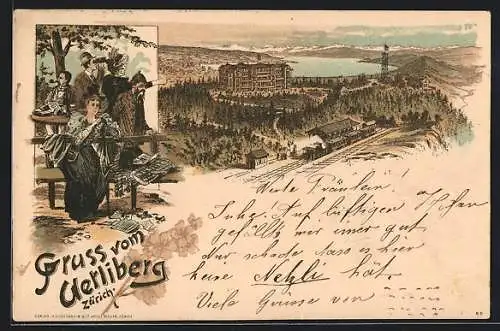 Gruss vom
Uetliberg
Zürich.
Liebe Fräulein!
Auf luftigen Höhen
gefällts mir immer gut
nur schade dass es hier
keine Nebzli hat.
Viele Grüsse von